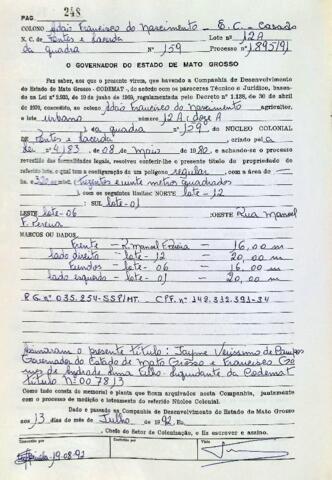 PAG. 248
COLONO Adais Francisco do Nascimento - E. C. - Casado
N. C. de Pontes e Lacerda Lote nº 12A
da quadra Nº 159 Processo nº 1.895/91
O GOVERNADOR DO ESTADO DE MATO GROSSO
Faz saber, aos que o presente virem, que havendo a Companhia de Desenvolvimento
do Estado de Mato Grosso - CODEMAT -, de acordo com os pareceres Técnico e Jurídico, baseados
na Lei nº de 19 de junho de 1966, regulamentada pelo Decreto nº 1.138, de 30 de abril
de 1970, concedido, ao colono Francisco do Nascimento, agricultor,
o lote urbano número 12A (doze A)
da quadra nº 159. DO NÚCLEO COLONIAL
de Pontes e Lacerda, criado pela
Lei nº 4.183 de 08 de Maio de 1980, e achando-se o processo
revestido das formalidades legais, resolves conferir-lhe o presente título de propriedade do
referido lote, o qual tem a configuração de um polígono regular, com a área de
320,00 m² (trezentos e vinte metros quadrados)
, com os seguintes limites: NORTE lote-12
: SUL lote-01
LESTE lote-06 : OESTE Rua Manoel
Ferreira
MARCOS OU DADOS
Frente - R. Manoel Ferreira - 16,00 m
lado direito - lote-12 - 20,00 m
Fundos - lote-06 - 16,00 m
lado esquerdo - lote-01 - 20,00 m
R.G. nº 035.254-SSP/MT. CPF. nº
Assinaram o presente título: Jayme Veríssimo de Campos
Governador do Estado de Mato Grosso e Francisco
de Andrade Lima Filho - Liquidante da Codemat
Título Nº 007813
Como tudo consta do memorial e planta que ficam arquivados nesta Companhia, juntamente
com o processo de medição e loteamento do referido Núcleo Colonial.
Dado e passado na Companhia de Desenvolvimento do Estado de Mato Grosso
aos 13 dias do mês de Julho de 1992. Eu,
, Chefe do Setor de Colonização, o fiz escrever e assino.
Visto
19-08-92